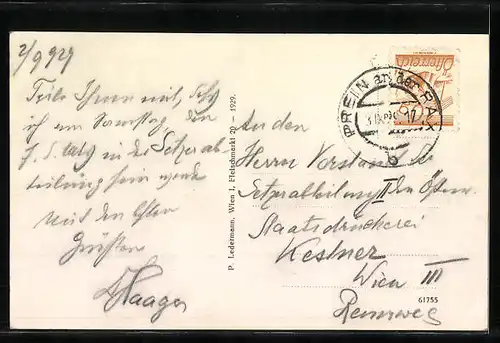 2/9 929
Teile Ihnen mit, daß
ich am Samstag, den
7. d. Mts in der Setzerab-
teilung sein werde
Mit den besten
Grüßen
Haager
P. Ledermann, Wien I, Fleischmarkt 20 — 1929.
PREIN an der RAX
b
Österreich
An den
Herrn Vorstand der
Setzerabteilung II der Österr.
Staatsdruckerei
Kestner
Wien III
Rennweg
61755